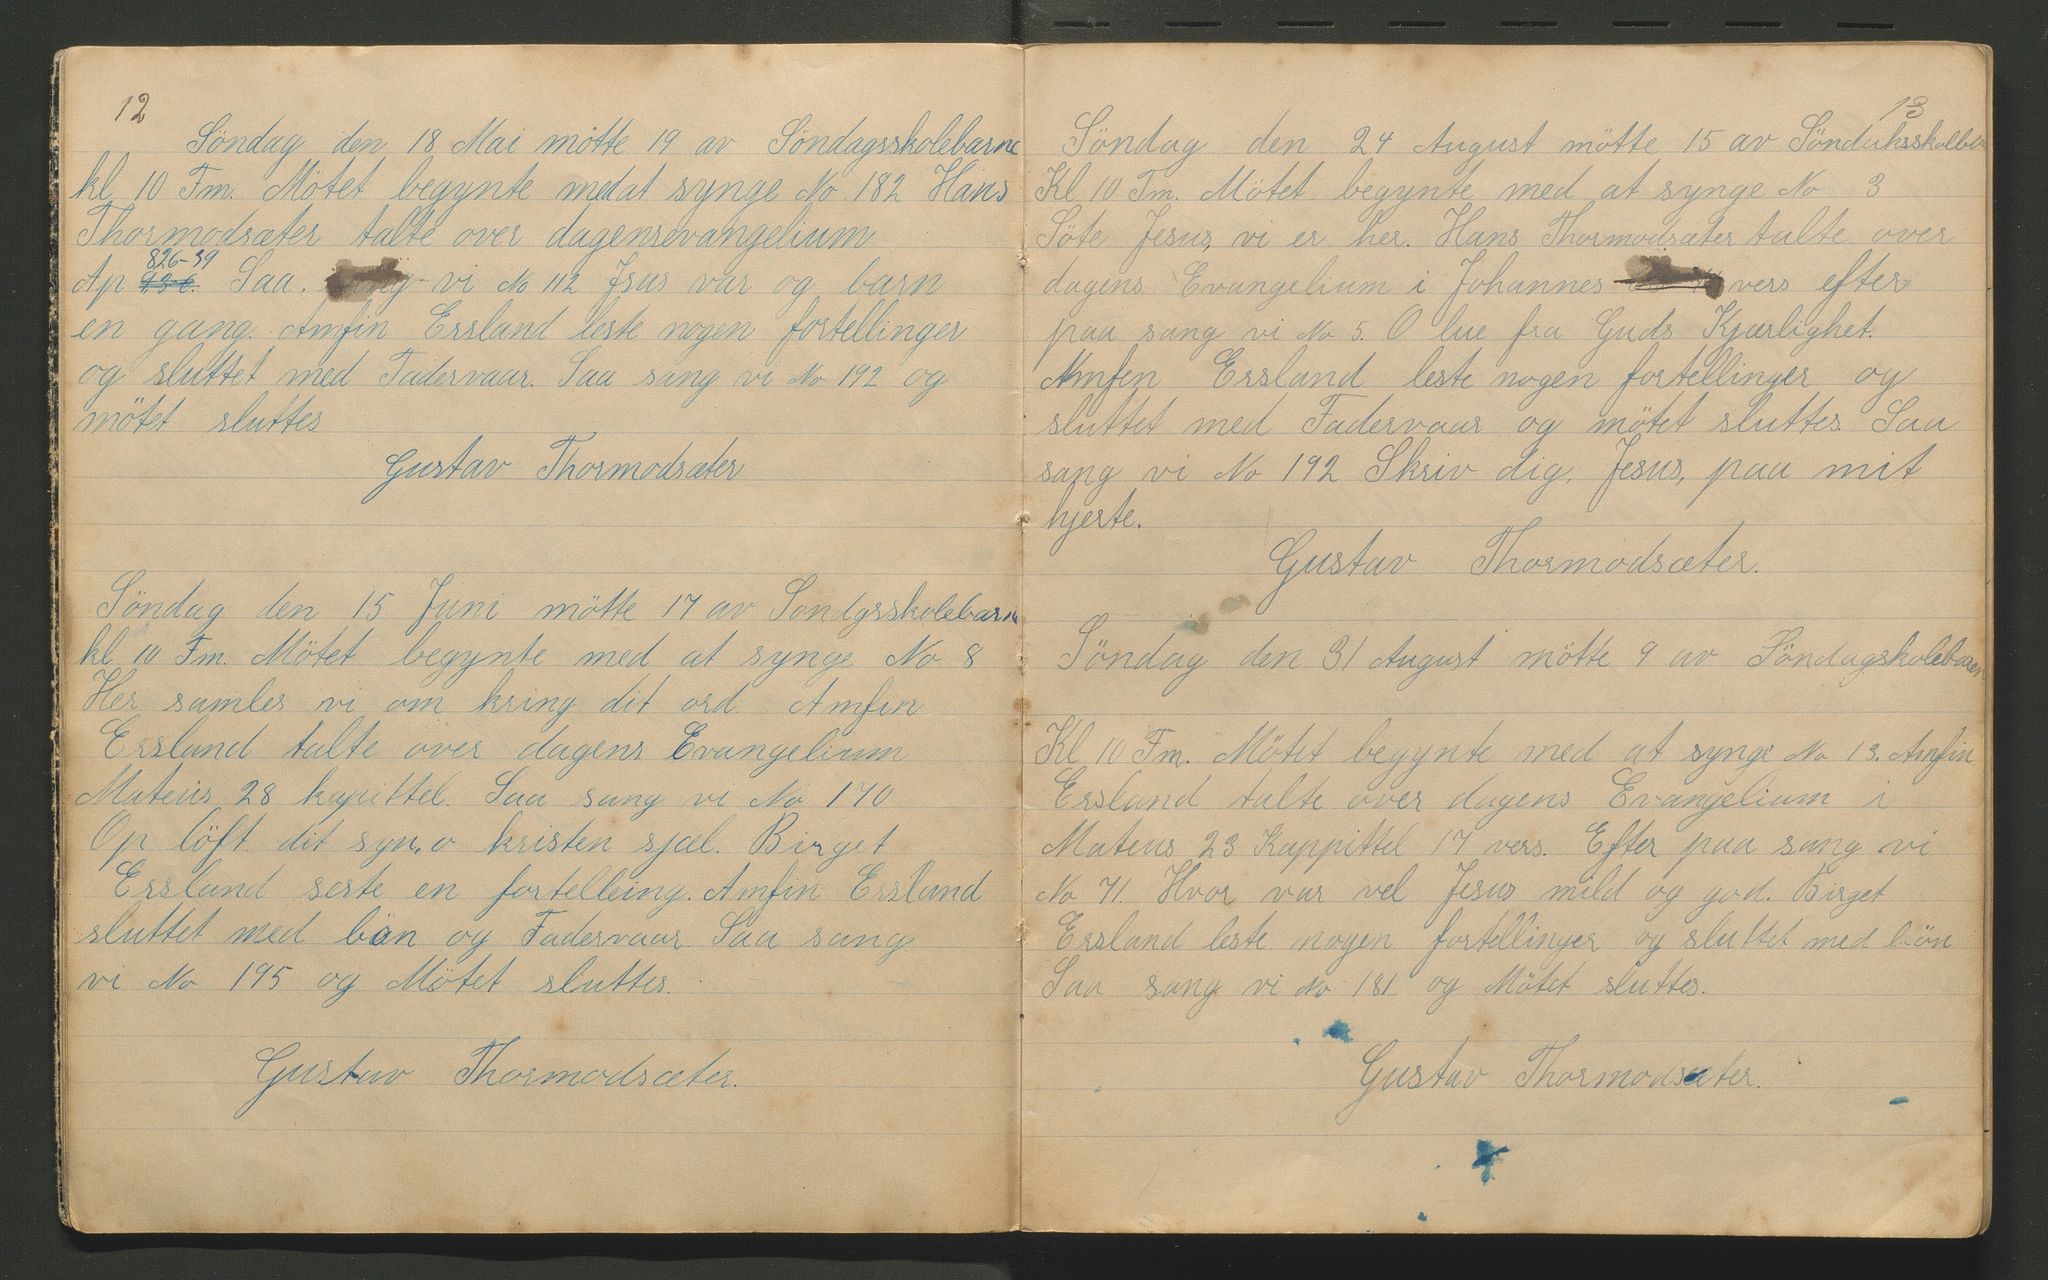 12
Söndag den 18 Mai mötte 19 av Söndagsskolebarne
kl 10 Fm. Mötet begynte med at synge No 182 Hans
Thormodsæter talte over dagensevangelium
826-39
Ap Saa. sang vi No 112 Jsus var og barn
en gang. Amfin Ersland leste nogen fortellinger
og sluttet med Fadervaar. Saa sang vi No 192 og
mötet sluttes
Gustav Thormodsæter
Söndag den 15 Juni mötte 17 av Sondgsskolebarne
kl 10 Fm. Mötet begynte med at synge No 8
Her samles vi om kring dit ord. Amfin
Ersland talte over dagens Evangelium
Mateus 28 kapittel. Saa sang vi No 170
Op löft dit syn, o kristen sjæl. Birget
Ersland seste en fortelleing. Amfin Ersland
sluttet med bön og Fadervaar. Saa sang
vi No 195 og Mötet sluttes.
Gustav Thormodsæter.
13
Söndag den 24 August mötte 15 av
Kl 10 Fm. Mötet begynte med at synge No 3
Söte Jesus, vi er her. Hans Thormodsæter talte over
dagens Evangelium i Johannes vers efter
paa sang vi No 5. O lue fra Guds Kjærlighet.
Amfen Ersland leste nogen fortellinger og
sluttet med Fadervaar og mötet sluttes. Saa
sang vi No 192 Skriv dig, Jesus, paa mit
hjerte.
Gustav Thormodsæter.
Söndag den 31 August mötte 9 av Söndagskolebaren
Kl 10 Fm. Mötet begynte med at synge No 13. Amfin
Ersland talte over dagens Evangelium i
Mateus 23 Kappittel 17 vers. Efter paa sang vi
No 71. Hvor var vel Jesus mild og god. Birget
Ersland leste nogen fortellinger og sluttet med bön
Saa sang vi No 181 og Mötet sluttes.
Gustav Thormodsæter.